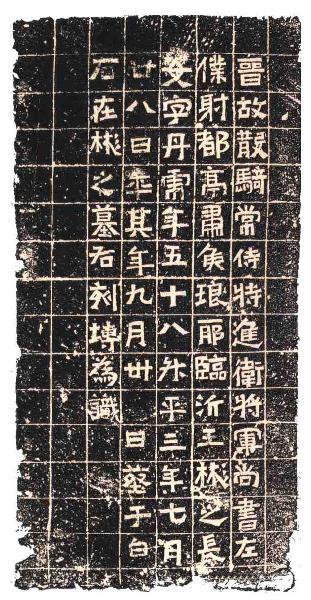 晉故散騎常侍特進衛將軍尚書左
僕射都亭肅侯琅耶臨沂王彬之長
女字丹虎年五十八升平三年七月
廿八日卒其年九月卅日葬于白
石在彬之墓右刻塼為識